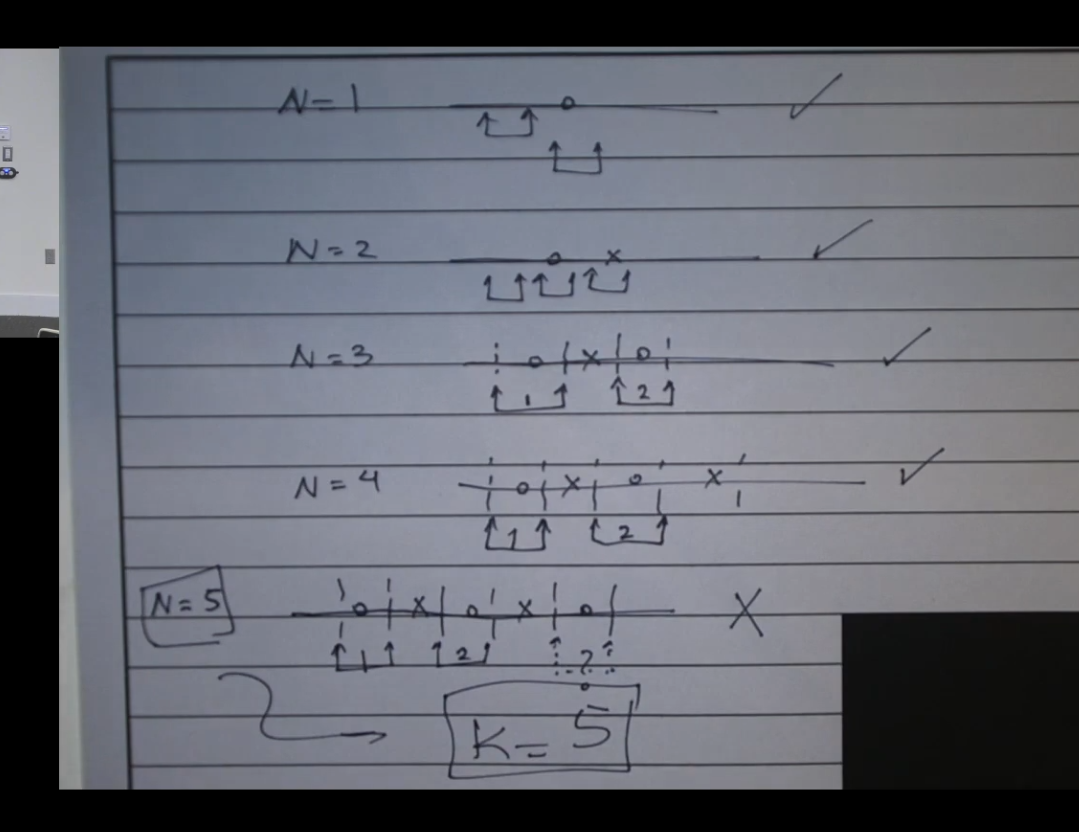 N=1 o ✓
N=2 o x ✓
N=3 o x o ✓
1 2
N=4 o x o x ✓
1 2
N=5 o x o x o X
1 2 ?
K=5